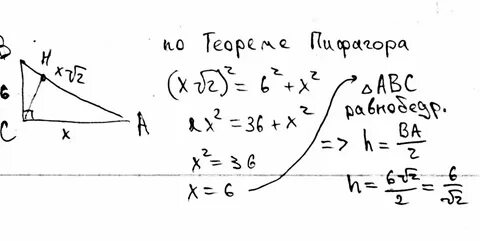 B
H
x√2
6
C
x
A
по Теореме Пифагора
(x√2)² = 6² + x²
2x² = 36 + x²
x² = 36
x = 6
△ABC
равнобедр.
=> h = BA/2
h = 6√2/2 = 6/√2